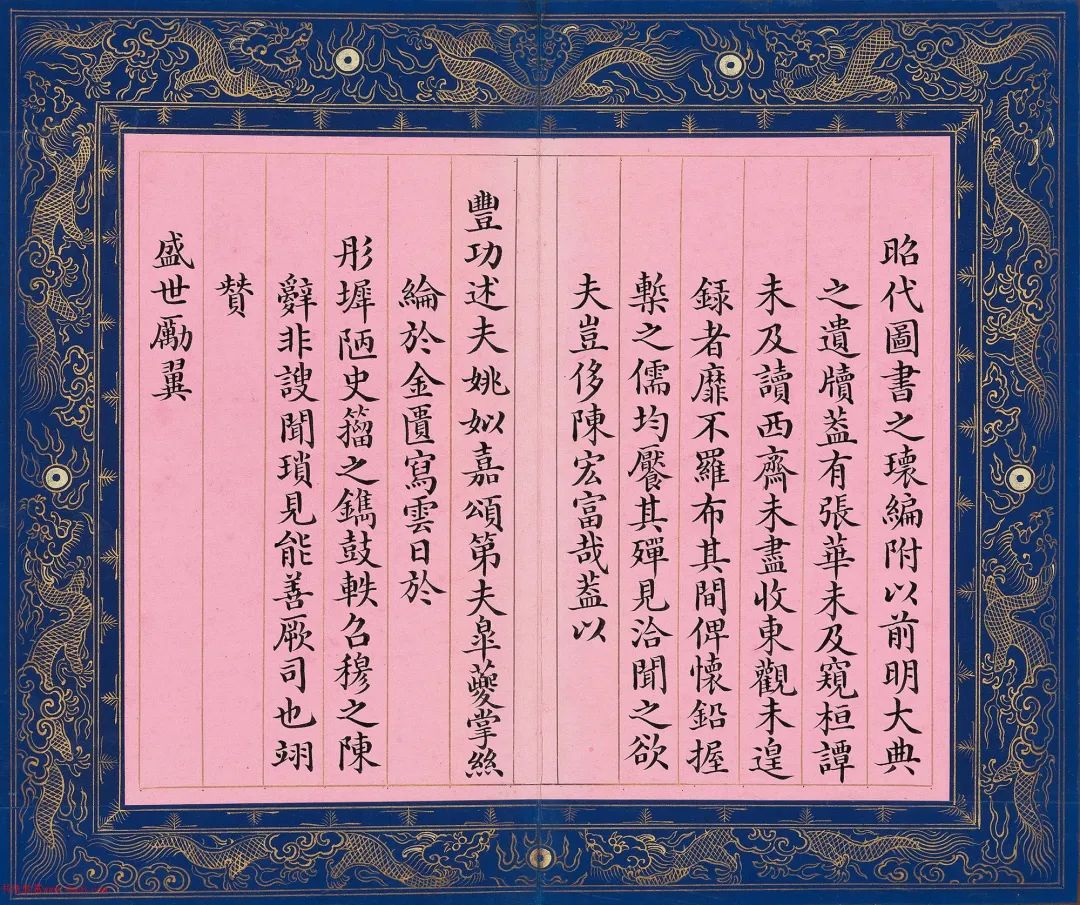 昭代圖書之瓌編附以前明大典
之遺牘葢有張華未及窺桓譚
未及讀西齋未盡收東觀未遑
録者靡不羅布其間俾懷鉛握
槧之儒均饜其殫見洽聞之欲
夫豈侈陳宏富哉葢以
豐功述夫姚姒嘉頌第夫皐夔掌絲
綸於金匱寫雲日於
彤墀陋史籀之鐫鼓軼召穆之陳
辭非謏聞瑣見能善厥司也翊
贊
盛世勵翼